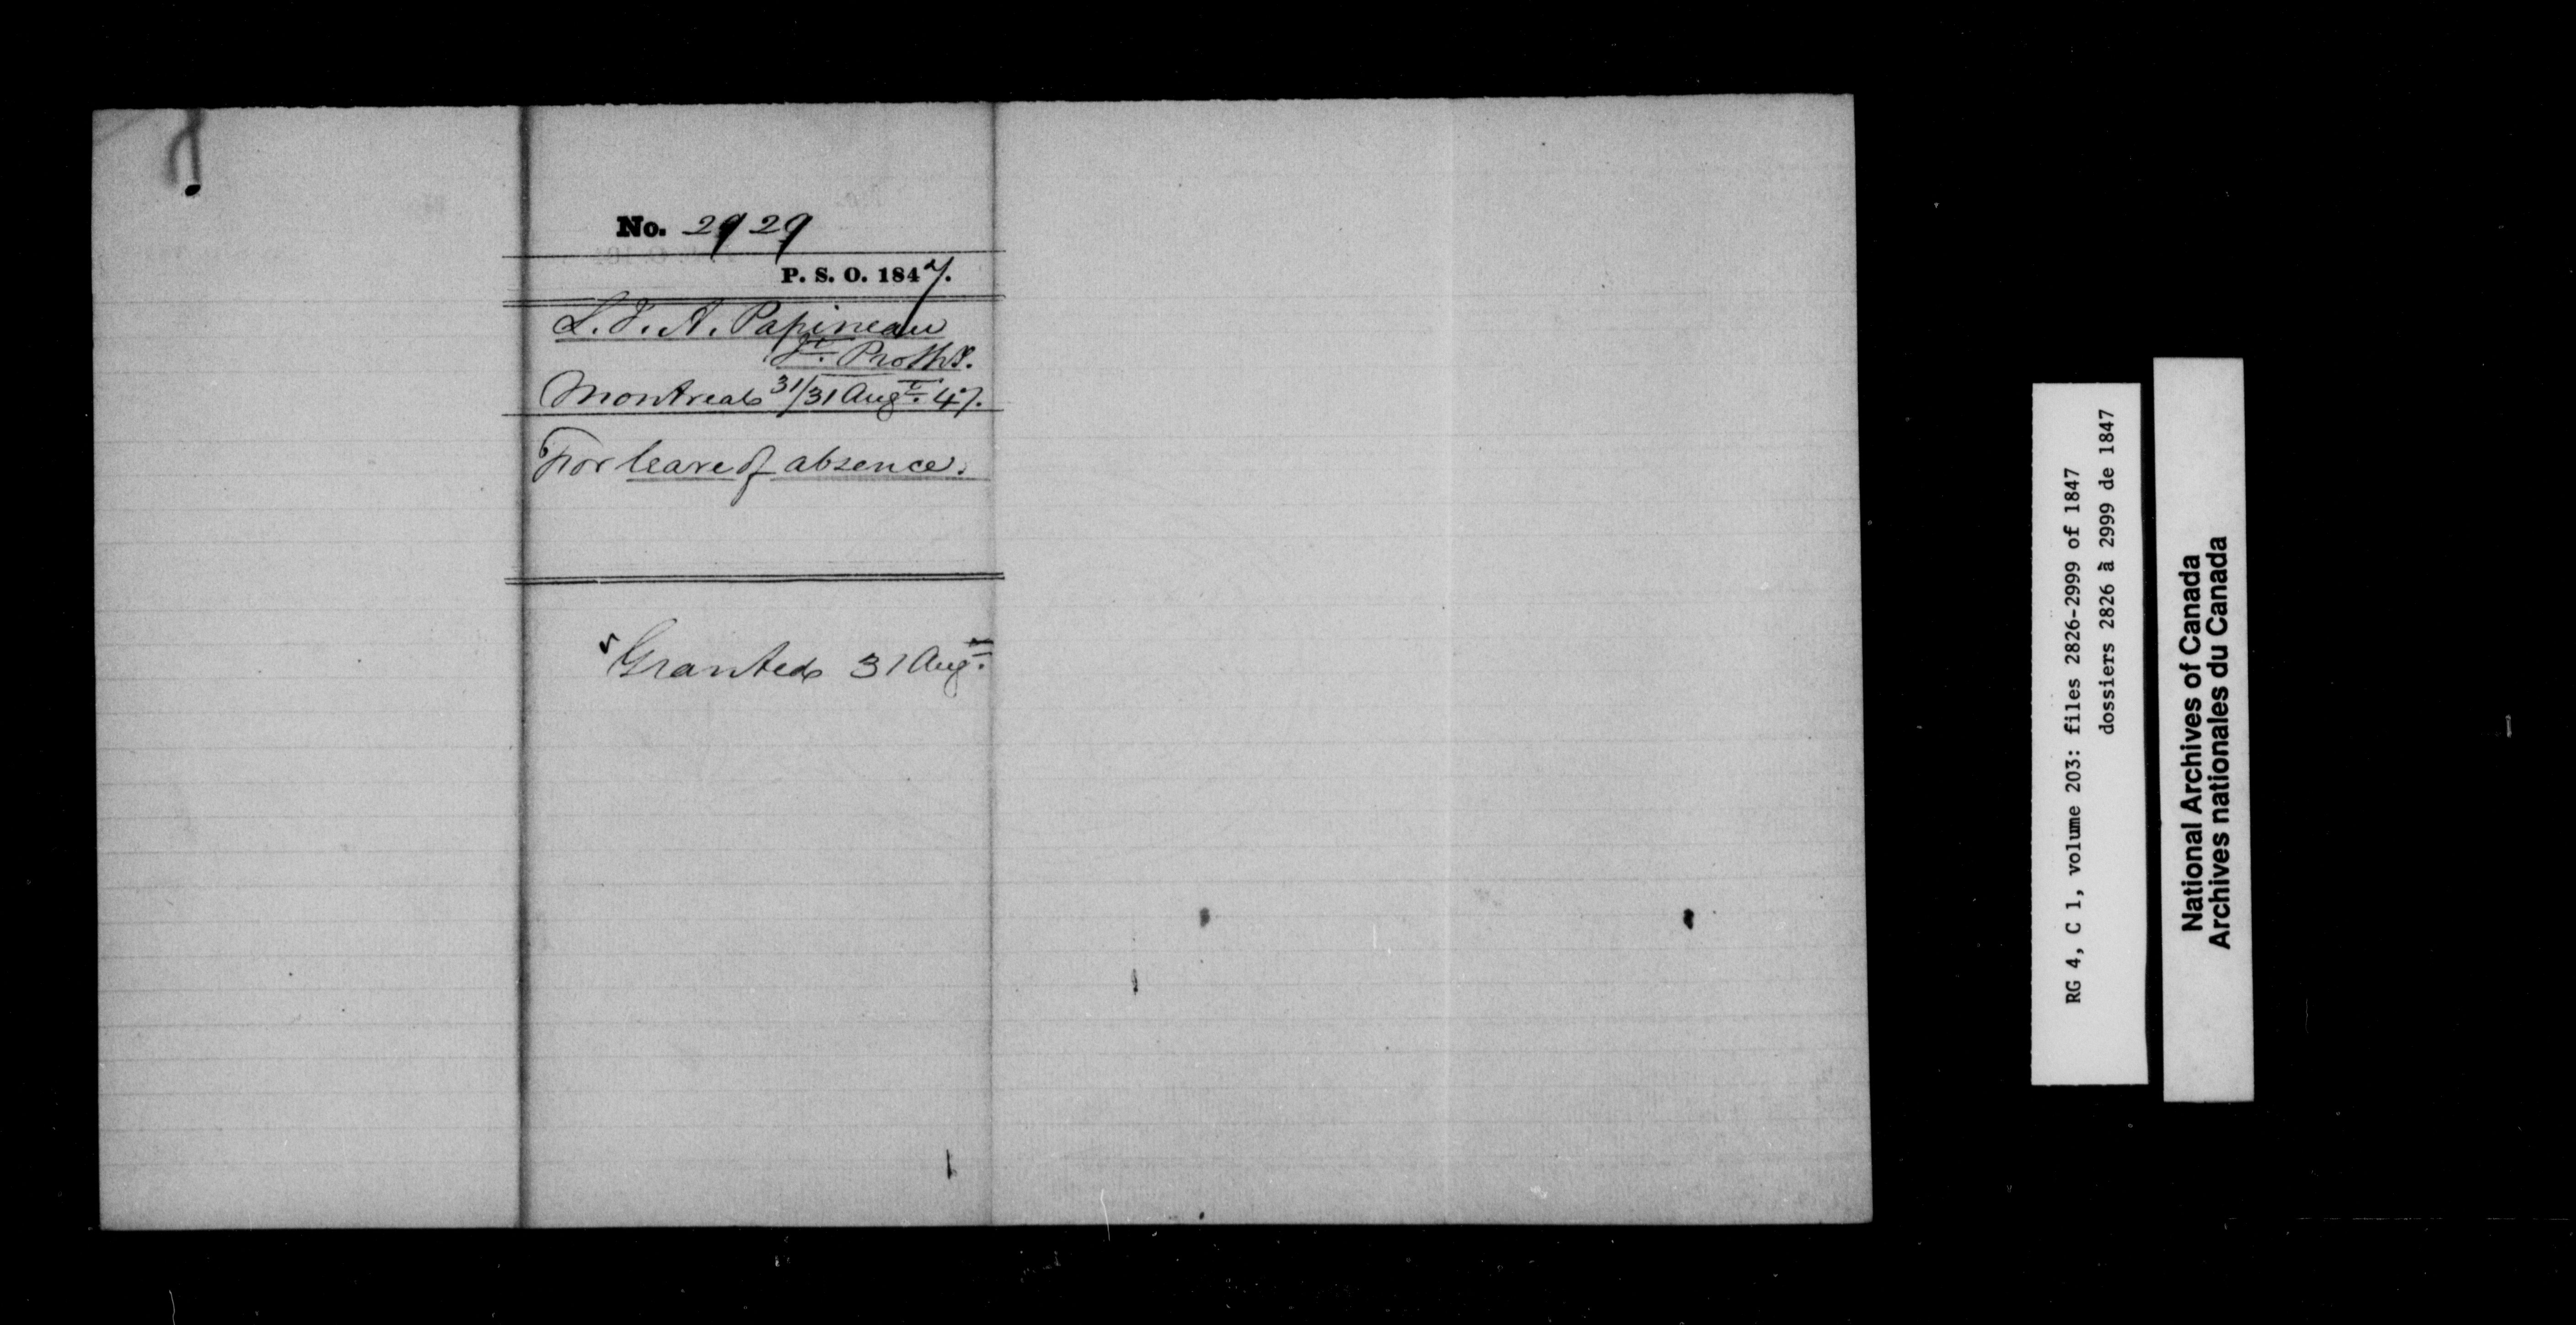 No. 2929
P. S. O. 1847.
L. J. A. Papineau
Jt. Prothy.
Montreal 31/31 Augt. 47.
For leave of absence.
Granted 31 Augt.
RG 4, C 1, volume 203: files 2826-2999 of 1847
dossiers 2826 à 2999 de 1847
National Archives of Canada
Archives nationales du Canada